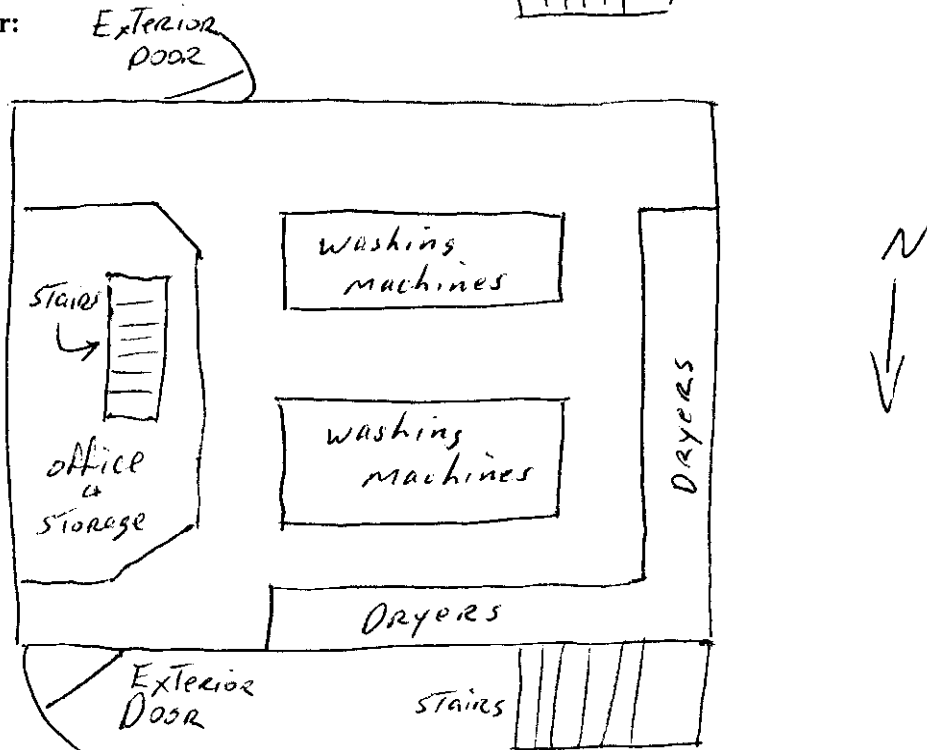 r:
Exterior
Door
washing
machines
Stairs
N
office
&
Storage
washing
machines
Dryers
Dryers
Exterior
Door
Stairs